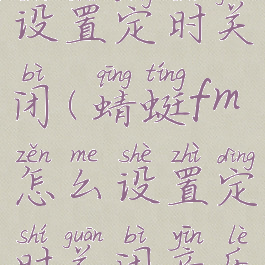 设置定时关
bì qīng tíng
闭(蜻蜓fm
zěn me shè zhì dìng
怎么设置定
shí guān bì yīn lè
时关闭音乐